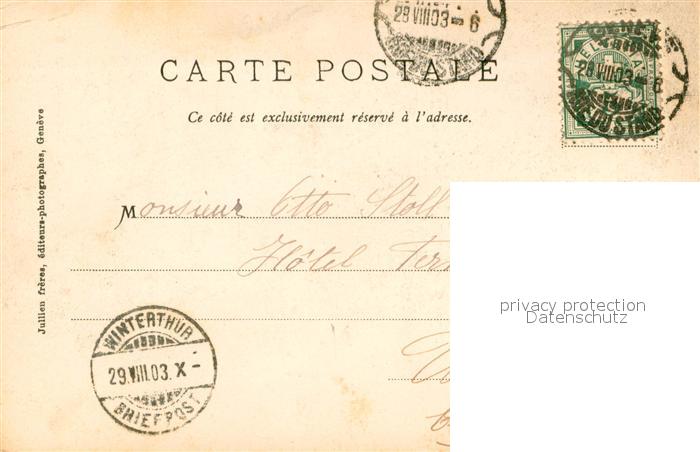 29.VIII.03-6
CARTE POSTALE
29.VIII.03-6
RUE DU STAND
Ce côté est exclusivement réservé à l'adresse.
Monsieur Otto Stoll
Hôtel
privacy protection
Datenschutz
WINTERTHUR
29.VIII.03.X-
BRIEFPOST
Jullien frères, éditeurs-photographes, Genève